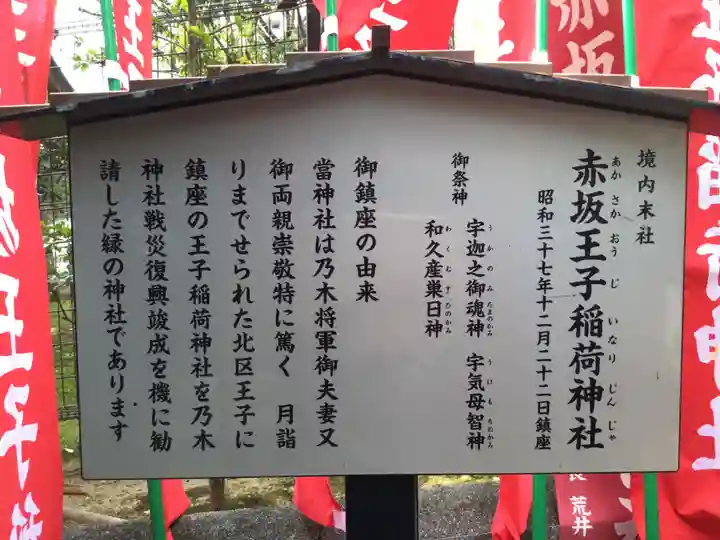 境内末社
赤坂王子稲荷神社
あかさかおうじいなりじんじゃ
昭和三十七年十二月二十二日鎮座
御祭神
宇迦之御魂神 宇気母智神
うかのみたまのかみ うけもちのかみ
和久産巣日神
わくむすひのかみ
御鎮座の由来
當神社は乃木将軍御夫妻又
御両親崇敬特に篤く 月詣
りまでせられた北区王子に
鎮座の王子稲荷神社を乃木
神社戦災復興竣成を機に勧
請した縁の神社であります
赤坂
荒井